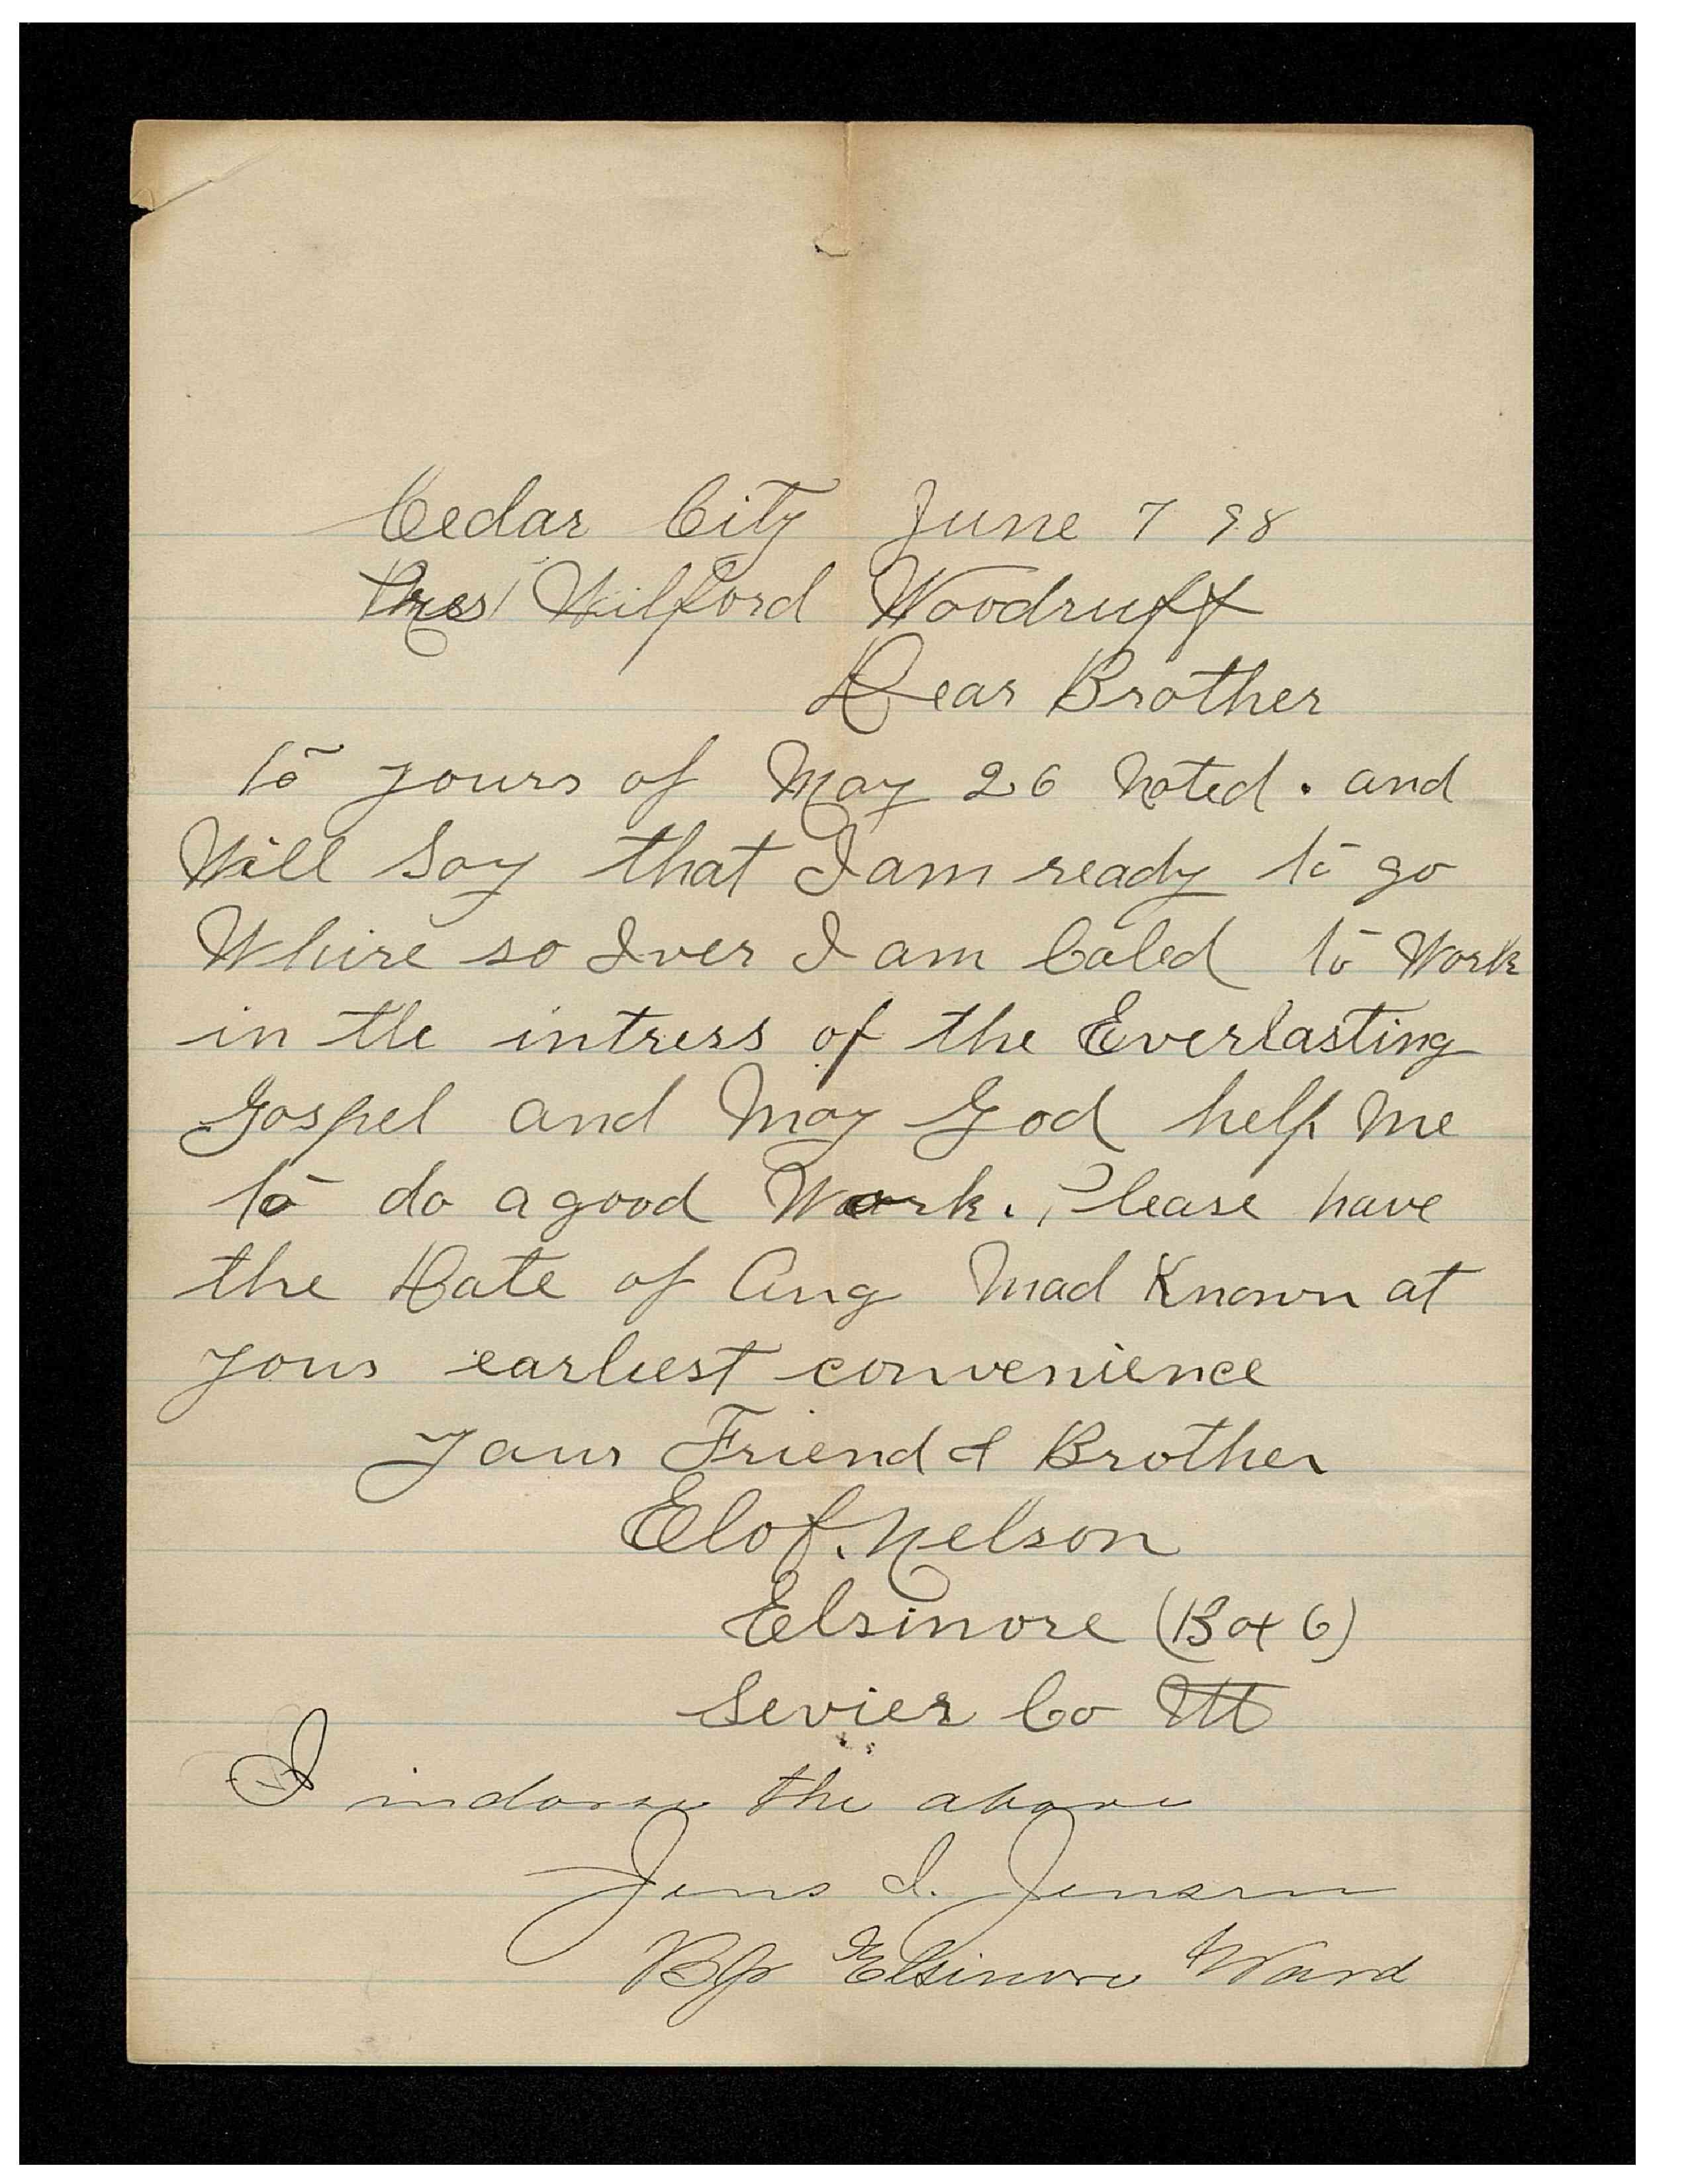 Cedar City June 7 98
Pres Wilford Woodruff
Dear Brother
to yours of May 26 Noted. and
Will Say that I am ready to go
Whire so Iver I am Caled to Work
in the intress of the Everlasting
Gospel and May God help Me
to do a good Work. Please have
the Date of Aug Mad Known at
your earliest convenience
Your Friend & Brother
Elof. Nelson
Elsinore (Box 6)
Sevier Co Ut
I indorse the above
Jens I. Jensen
Bp Elsinore Ward